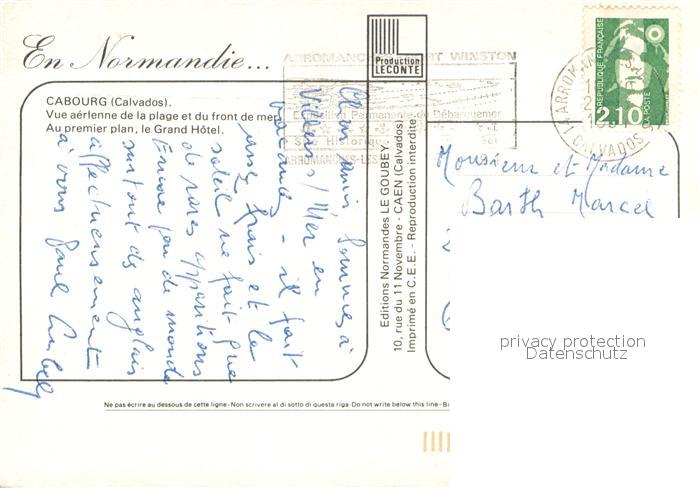 En Normandie...
Production
LECONTE
ARROMANCHES PORT WINSTON
Permanente du Débarquement
Site Historique
ARROMANCHES-LES
RÉPUBLIQUE FRANÇAISE
2,10
LA POSTE
14 ARROM
1991
CALVADOS
CABOURG (Calvados).
Vue aérienne de la plage et du front de mer.
Au premier plan, le Grand Hôtel.
Chers amis, sommes à
Villers/Mer en
vacances - il fait
assez frais et le
soleil ne fait que
de rares apparitions
Encore peu de monde
surtout des anglais
affectueusement
à vous Paul
Editions Normandes LE GOUBEY
10, rue du 11 Novembre - CAEN (Calvados)
Imprimé en C.E.E. - Reproduction interdite
Monsieur et Madame
Barth Marcel
privacy protection
Datenschutz
Ne pas écrire au dessous de cette ligne - Non scrivere al di sotto di questa riga - Do not write below this line - B